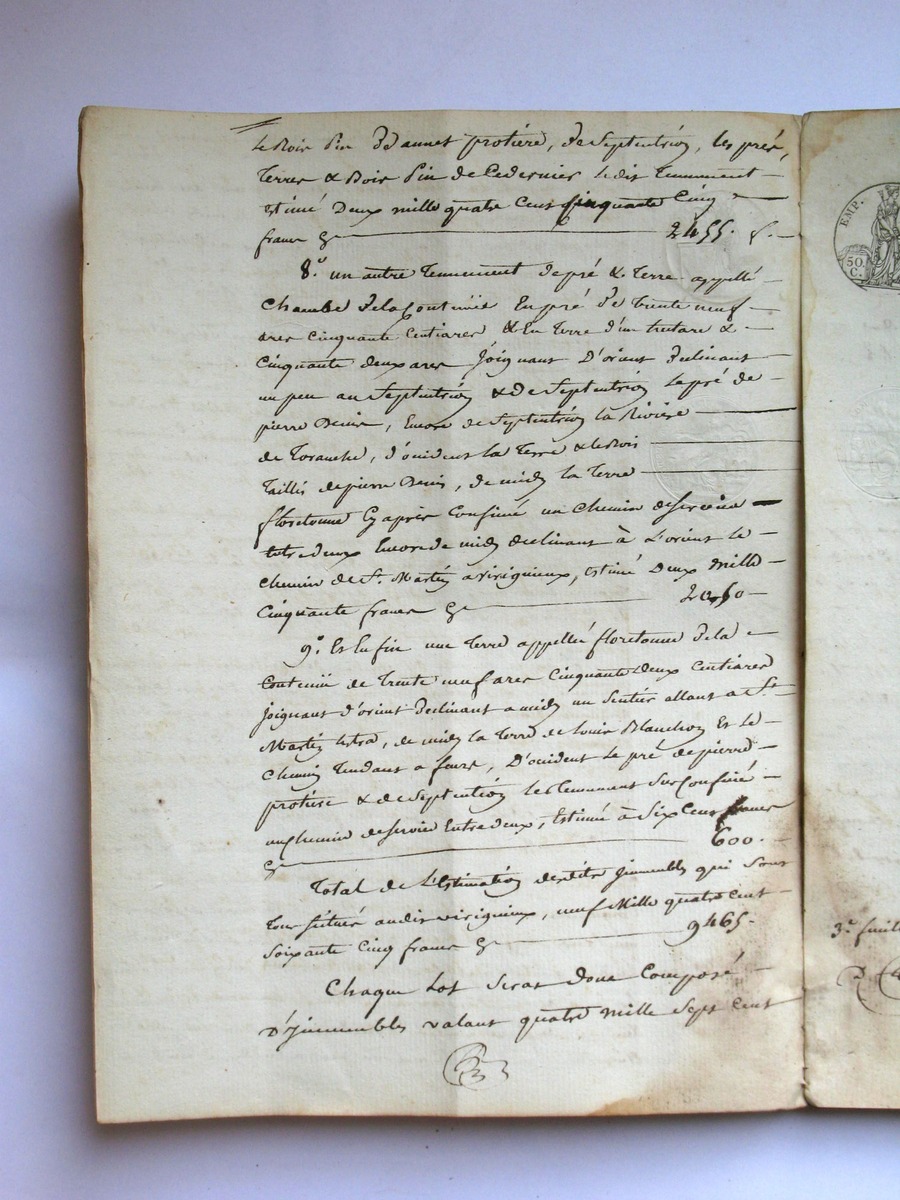 le Bois Pin d'annet protiere, de Septentrion, les prés,
Terres & Bois Pin de ce dernier le dit Tennement
estimé Deux mille quatre Cent cinquante Cinq
francs Cy 2455. f.
8.° un autre Tennement de pré & Terre appellé
Chambe de la Contenüe En pré de Trente neuf
ares cinquante Centiares & En Terre d'un hectare &
Cinquante deux ares Joignant D'orient Declinant
un peu au Septentrion & de Septentrion Le pré de
pierre Denis, Encore de Septentrion la Rivière
de Toranche, d'occident la Terre & le Bois
Taillis de pierre Denis, de midy la Terre
floretonne Cy après Confiné un Chemin de service
Entredeux Encore de midy declinant à L'orient le
Chemin de St. Martin a virigneux, Estimé Deux mille
Cinquante francs Cy 2050
9.° Et Enfin une Terre appellée floretonne de la
Contenüe de Trente neuf ares Cinquante Deux Centiares
Joignant d'orient Declinant a midy un Sentier allant a St
Martin Lestra, de midy la Terre de Louis Blanchon Et Le
Chemin Tendant a feurs, D'occident Le pré de pierre
protiere & de Septentrion le Tennement Sur Confiné
un Chemin de service Entredeux, Estimée à Six Cent francs
Cy 600.
Total de L'Estimation desdits Jmmeubles qui Sont
Tous Situés audit virigneux, neuf Mille quatre Cent
Soixante Cinq francs Cy 9465.
Chaque Lot Seras donc Composé
D'Jmmeubles valant quatre mille Sept Cent
EMP.
50
C.
3.e